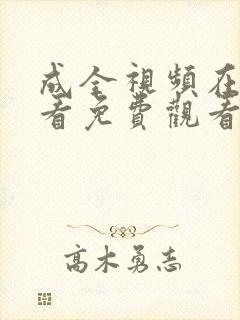 成全視頻在
看免費觀看
高木勇志